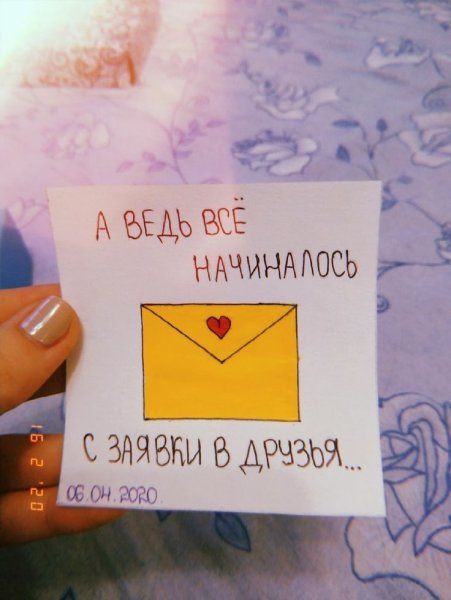 А ВЕДЬ ВСЁ
НАЧИНАЛОСЬ
С ЗАЯВКИ В ДРУЗЬЯ...
06.04.2020.
16 2 '20